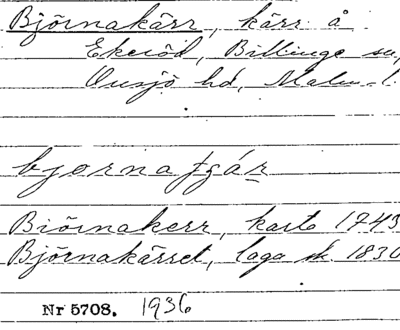 Björnakärr, kärr å
Ekeröd, Billinge sn,
Onsjö hd, Malm. l.
bjornaʃgár
Biörnakerr, karta 1743
Björnakärret, laga sk 1830
Nr 5708. 1936